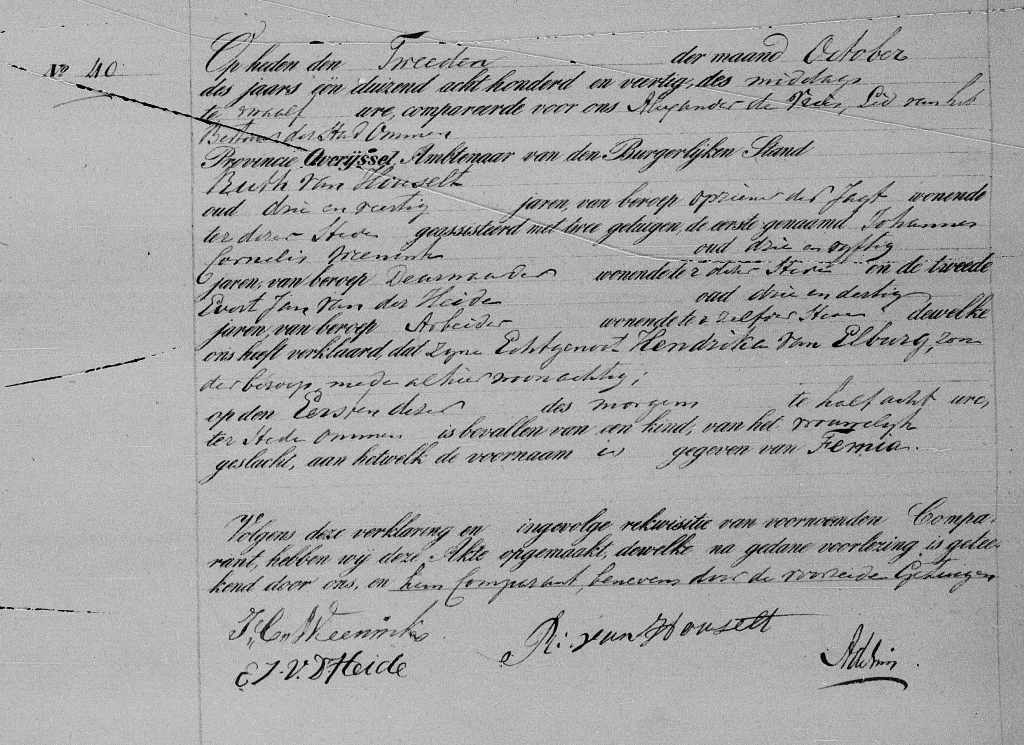 No 40
Op heden den Tweeden der maand October
des jaars een duizend acht honderd en veertig, des middags
te twaalf ure, compareerde voor ons Alexander de Vries, Lid van het
Bestuur der Stad Ommen
Provincie Overijssel, Ambtenaar van den Burgerlijken Stand
Ruth van Houselt
oud drie en veertig jaren, van beroep opziener der Jagt wonende
ter dezer Stede geassisteerd met twee getuigen, de eerste genaamd Johannes
Cornelis Weenink oud drie en vyftig
jaren, van beroep Deurwaarder wonende ter dezer Stede en de tweede
Evert Jan van der Heide oud drie en dertig
jaren, van beroep Arbeider wonende ter zelfder Stede dewelke
ons heeft verklaard, dat zyne Echtgenoot Hendrika van Elburg, zon
der beroep, mede alhier woonachtig;
op den Eersten dezer des morgens te half acht ure,
ter Stede Ommen is bevallen van een kind, van het vrouwelijk
geslacht, aan hetwelk de voornaam is gegeven van Femia.
Volgens deze verklaring en ingevolge rekwisitie van voornoemden Compa-
rant, hebben wij deze Akte opgemaakt, dewelke na gedane voorlezing is getee-
kend door ons, en hem Comparant, benevens door de voorzeide Getuigen
J. C. Weenink
R. van Houselt
E J. V. D Heide